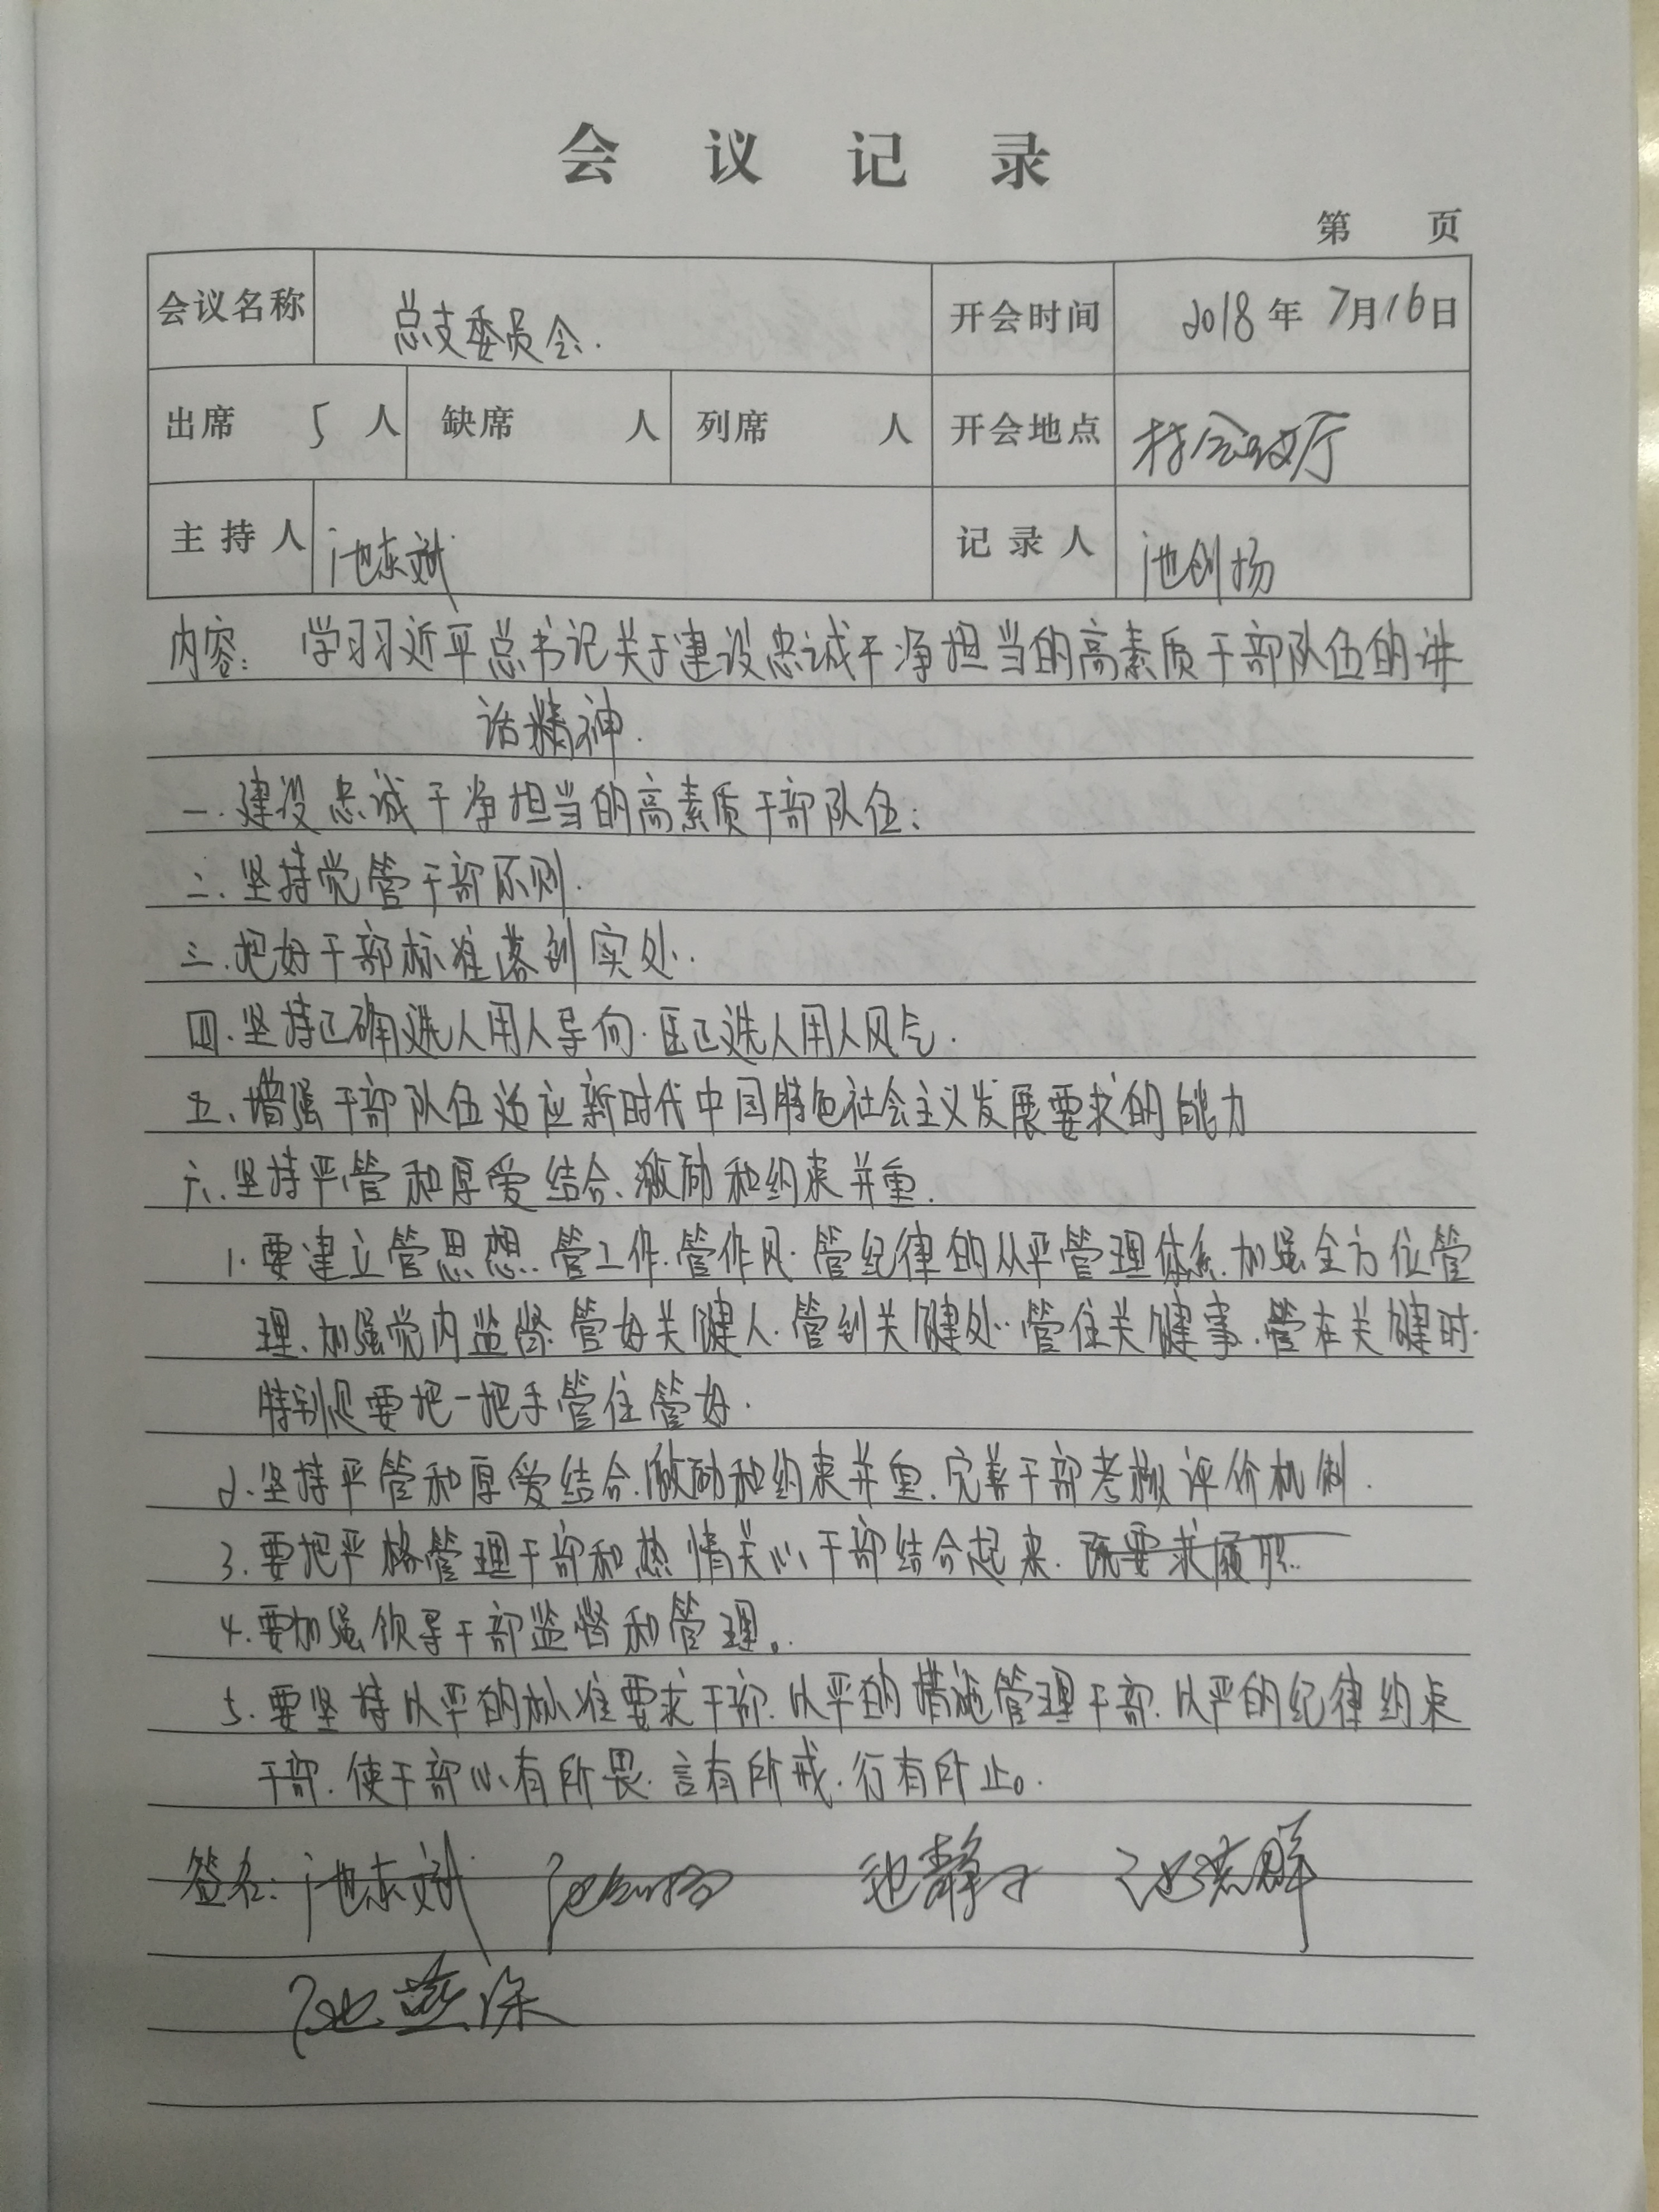 会议记录
第 页
会议名称 总支委员会. 开会时间 2018年7月16日
出席 5人 缺席 人 列席 人 开会地点 村会议厅
主持人 池东斌 记录人 池创扬
内容: 学习习近平总书记关于建设忠诚干净担当的高素质干部队伍的讲
话精神.
一.建设忠诚干净担当的高素质干部队伍;
二、坚持党管干部原则.
三.把好干部标准落到实处.
四、坚持正确选人用人导向.匡正选人用人风气.
五、增强干部队伍适应新时代中国特色社会主义发展要求的能力
六、坚持严管和厚爱结合、激励和约束并重.
1.要建立管思想.管工作.管作风.管纪律的从严管理体系.加强全方位管
理、加强党内监督.管好关键人、管到关键处.管住关键事、管在关键时.
特别是要把一把手管住管好.
2.坚持严管和厚爱结合.激励和约束并重.完善干部考核评价机制.
3.要把严格管理干部和热情关心干部结合起来.既要求履职.
4.要加强领导干部监督和管理。
5.要坚持以严的标准要求干部.以严的措施管理干部.以严的纪律约束
干部.使干部心有所畏.言有所戒.行有所止。
签名: 池东斌 池创扬 池静 池 群
池燕深